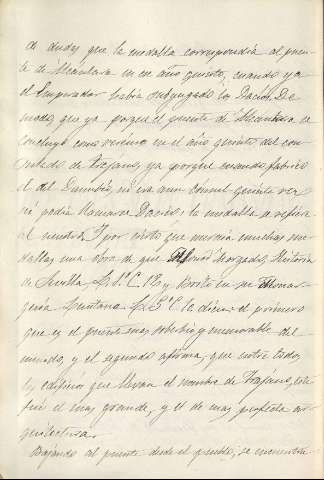 de duda, que la medalla correspondia al puen-
te de Alcantara en un año quinto, cuando ya
el Emperador habia subyugado los Dacios. De
modo, que ya porque el puente de Alcantara se
concluyó como vinimos en el año quinto del con-
sulado de Trajano, ya porque cuando fabricó
el del Danubio, no era aun consul quinta vez
ni podia llamarse Dacico, la medalla se refiere
al nuestro. Y por cierto que merecia muchas me-
dallas una obra de que Alfonso Morgado, Historia
de Sevilla L. 1. C. 13 y
Quintana L. 3 C. le dicen: el primero
que es el puente mas soberbio y memorable del
mundo, y el segundo afirma, que entre todos
los edificios que llevan el nombre de Trajano, este
fué el mas grande, y el de mas perfecta ar-
quitectura.
Bajando al puente desde el pueblo, se encuentra